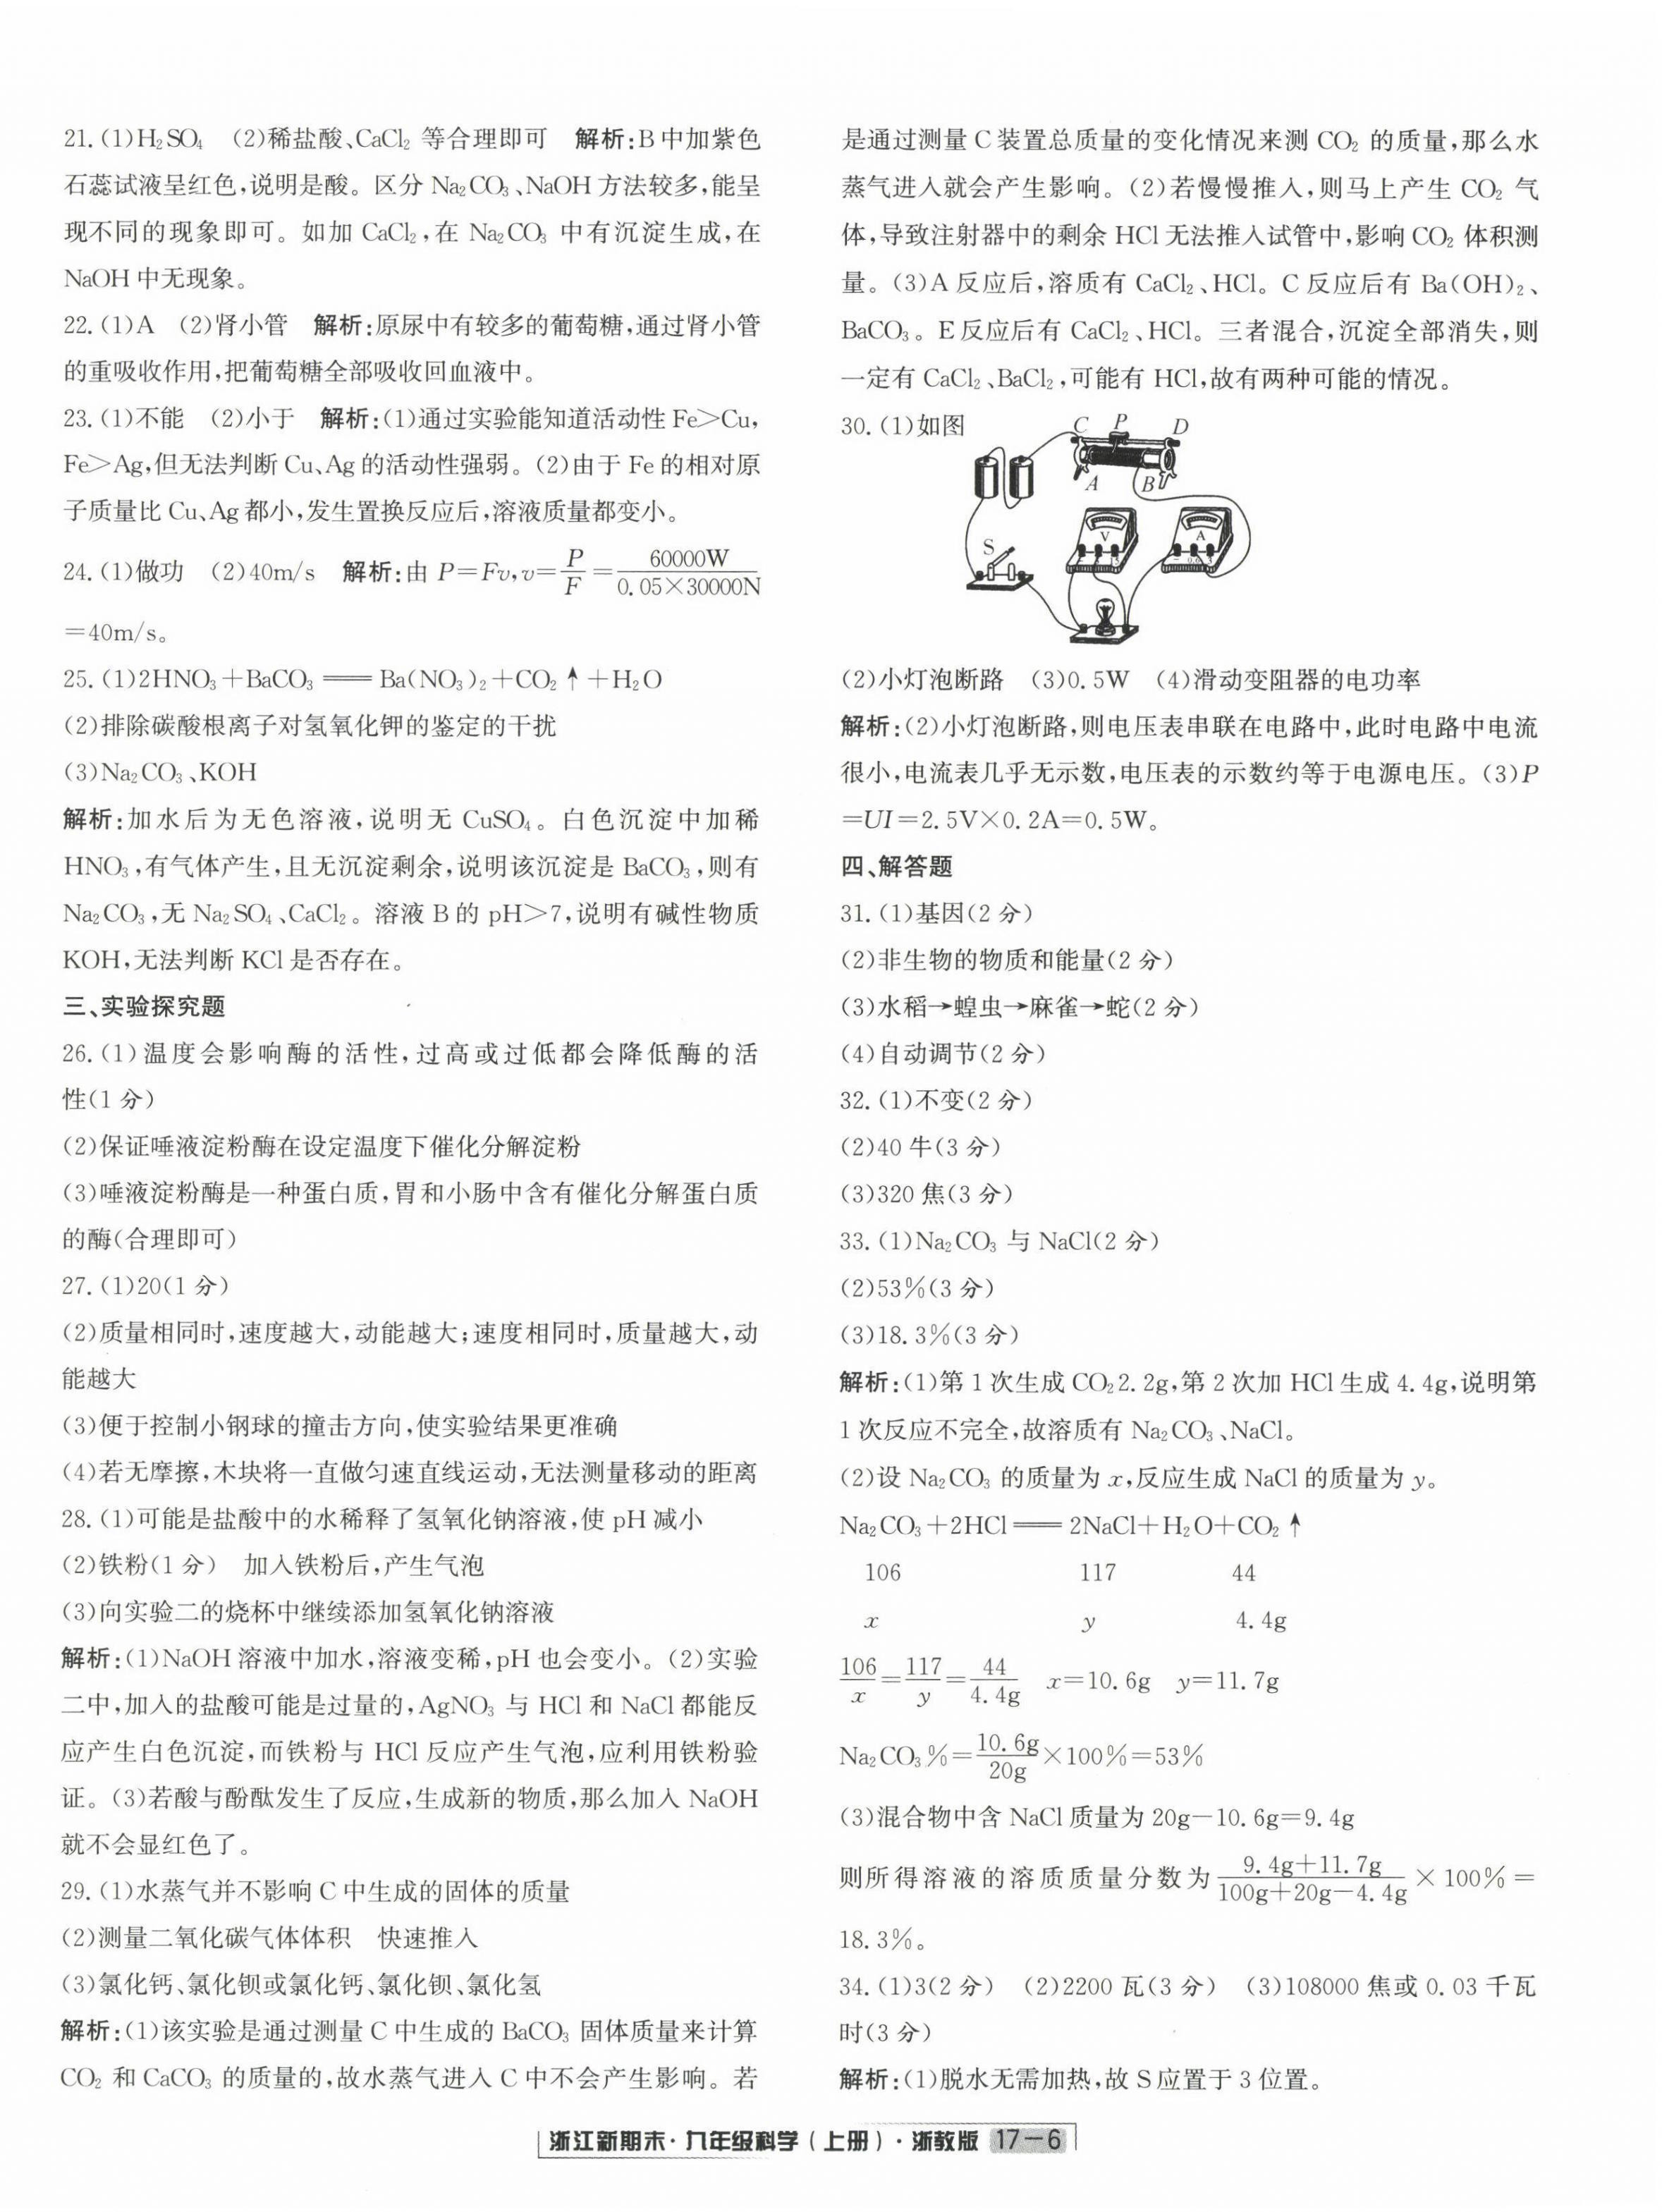 21. (1)H₂SO₄　(2)稀盐酸、CaCl₂ 等合理即可　解析:B中加紫色
石蕊试液呈红色,说明是酸。区分 Na₂CO₃、NaOH 方法较多,能呈
现不同的现象即可。如加 CaCl₂,在 Na₂CO₃ 中有沉淀生成,在
NaOH 中无现象。
22. (1)A　(2)肾小管　解析:原尿中有较多的葡萄糖,通过肾小管
的重吸收作用,把葡萄糖全部吸收回血液中。
23. (1)不能　(2)小于　解析:(1)通过实验能知道活动性 Fe>Cu,
Fe>Ag,但无法判断 Cu、Ag 的活动性强弱。(2)由于 Fe 的相对原
子质量比 Cu、Ag 都小,发生置换反应后,溶液质量都变小。
24. (1)做功　(2)40m/s　解析:由 P=Fv,v=P/F=60000W/(0.05×30000N)
=40m/s。
25. (1)2HNO₃+BaCO₃══Ba(NO₃)₂+CO₂↑+H₂O
(2)排除碳酸根离子对氢氧化钾的鉴定的干扰
(3)Na₂CO₃、KOH
解析:加水后为无色溶液,说明无 CuSO₄。白色沉淀中加稀
HNO₃,有气体产生,且无沉淀剩余,说明该沉淀是 BaCO₃,则有
Na₂CO₃,无 Na₂SO₄、CaCl₂。溶液 B 的 pH>7,说明有碱性物质
KOH,无法判断 KCl 是否存在。
三、实验探究题
26. (1)温度会影响酶的活性,过高或过低都会降低酶的活
性(1 分)
(2)保证唾液淀粉酶在设定温度下催化分解淀粉
(3)唾液淀粉酶是一种蛋白质,胃和小肠中含有催化分解蛋白质
的酶(合理即可)
27. (1)20(1 分)
(2)质量相同时,速度越大,动能越大;速度相同时,质量越大,动
能越大
(3)便于控制小钢球的撞击方向,使实验结果更准确
(4)若无摩擦,木块将一直做匀速直线运动,无法测量移动的距离
28. (1)可能是盐酸中的水稀释了氢氧化钠溶液,使 pH 减小
(2)铁粉(1 分)　加入铁粉后,产生气泡
(3)向实验二的烧杯中继续添加氢氧化钠溶液
解析:(1)NaOH 溶液中加水,溶液变稀,pH 也会变小。(2)实验
二中,加入的盐酸可能是过量的,AgNO₃ 与 HCl 和 NaCl 都能反
应产生白色沉淀,而铁粉与 HCl 反应产生气泡,应利用铁粉验
证。(3)若酸与酚酞发生了反应,生成新的物质,那么加入 NaOH
就不会显红色了。
29. (1)水蒸气并不影响 C 中生成的固体的质量
(2)测量二氧化碳气体体积　快速推入
(3)氯化钙、氯化钡或氯化钙、氯化钡、氯化氢
解析:(1)该实验是通过测量 C 中生成的 BaCO₃ 固体质量来计算
CO₂ 和 CaCO₃ 的质量的,故水蒸气进入 C 中不会产生影响。若
是通过测量 C 装置总质量的变化情况来测 CO₂ 的质量,那么水
蒸气进入就会产生影响。(2)若慢慢推入,则马上产生 CO₂ 气
体,导致注射器中的剩余 HCl 无法推入试管中,影响 CO₂ 体积测
量。(3)A 反应后,溶质有 CaCl₂、HCl。C 反应后有 Ba(OH)₂、
BaCO₃。E 反应后有 CaCl₂、HCl。三者混合,沉淀全部消失,则
一定有 CaCl₂、BaCl₂,可能有 HCl,故有两种可能的情况。
30. (1)如图
C P D
A B
V A
S
(2)小灯泡断路　(3)0.5W　(4)滑动变阻器的电功率
解析:(2)小灯泡断路,则电压表串联在电路中,此时电路中电流
很小,电流表几乎无示数,电压表的示数约等于电源电压。(3)P
=UI=2.5V×0.2A=0.5W。
四、解答题
31. (1)基因(2 分)
(2)非生物的物质和能量(2 分)
(3)水稻→蝗虫→麻雀→蛇(2 分)
(4)自动调节(2 分)
32. (1)不变(2 分)
(2)40 牛(3 分)
(3)320 焦(3 分)
33. (1)Na₂CO₃ 与 NaCl(2 分)
(2)53%(3 分)
(3)18.3%(3 分)
解析:(1)第 1 次生成 CO₂ 2.2g,第 2 次加 HCl 生成 4.4g,说明第
1 次反应不完全,故溶质有 Na₂CO₃、NaCl。
(2)设 Na₂CO₃ 的质量为 x,反应生成 NaCl 的质量为 y。
Na₂CO₃+2HCl══2NaCl+H₂O+CO₂↑
106　117　44
x　y　4.4g
106/x=117/y=44/4.4g　x=10.6g　y=11.7g
Na₂CO₃%=10.6g/20g×100%=53%
(3)混合物中含 NaCl 质量为 20g-10.6g=9.4g
则所得溶液的溶质质量分数为 (9.4g+11.7g)/(100g+20g-4.4g)×100%=
18.3%。
34. (1)3(2 分)　(2)2200 瓦(3 分)　(3)108000 焦或 0.03 千瓦
时(3 分)
解析:(1)脱水无需加热,故 S 应置于 3 位置。
浙江新期末·九年级科学(上册)·浙教版 17-6